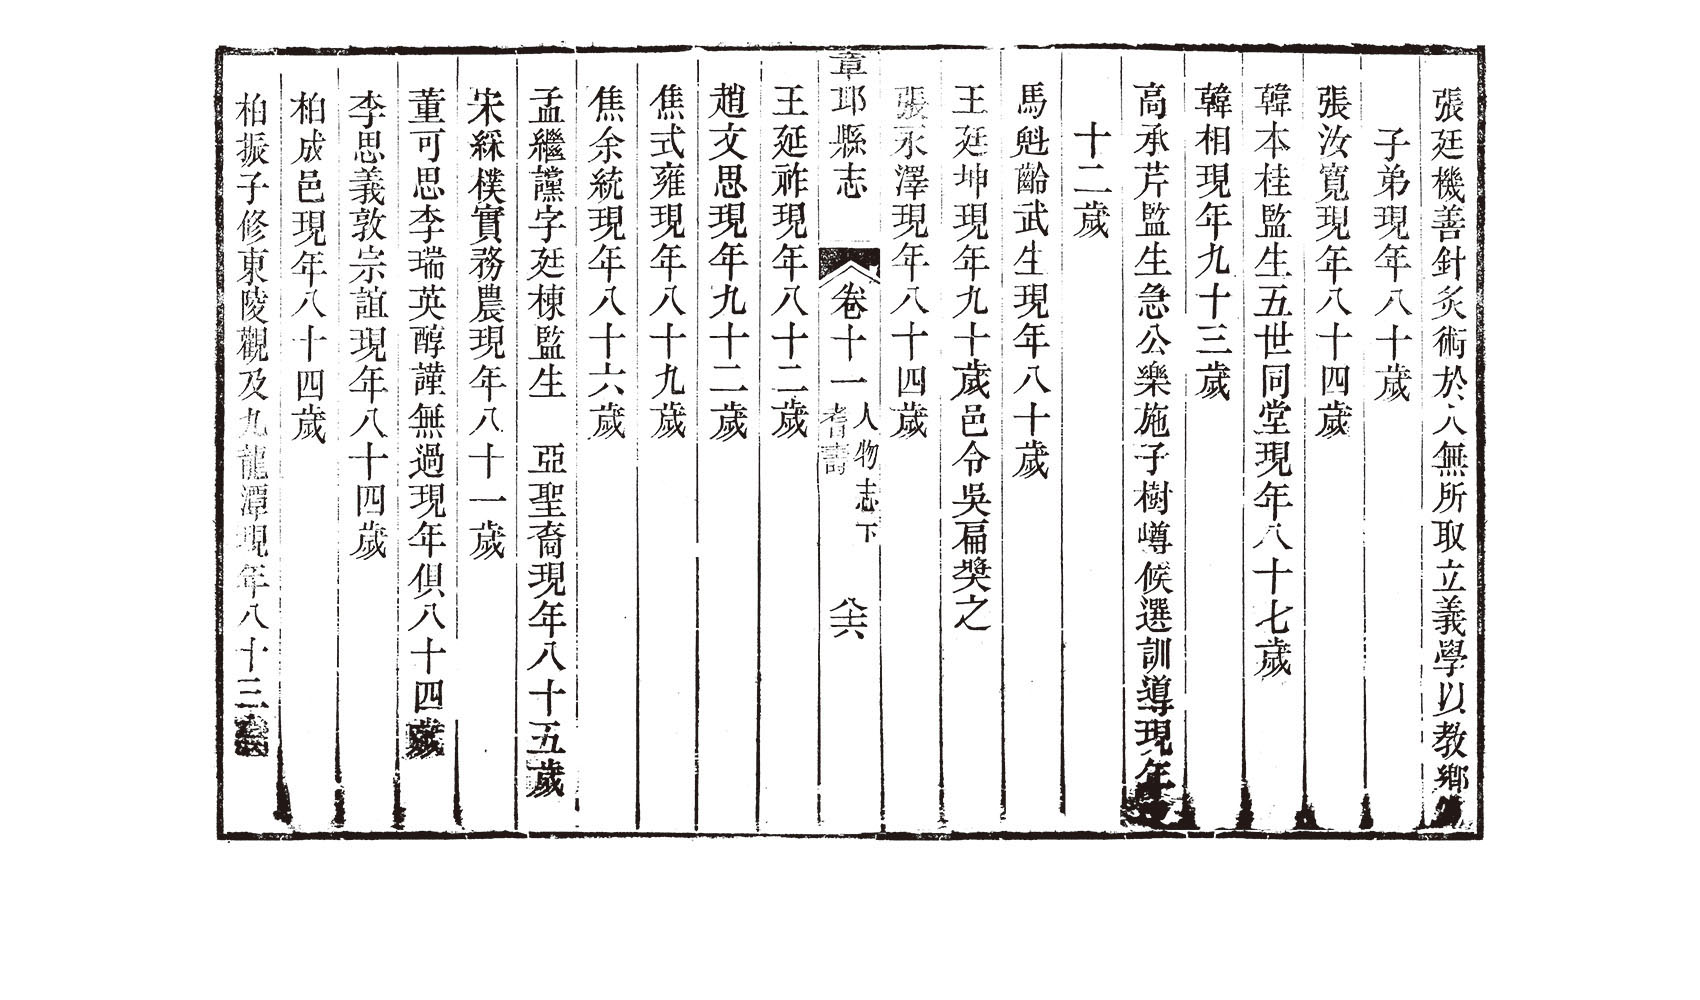 張廷機善針灸術於人無所取立義學以教鄉
子弟現年八十歲
張汝寬現年八十四歲
韓本桂監生五世同堂現年八十七歲
韓相現年九十三歲
高承芹監生急公樂施子樹嶟候選訓導現年
十二歲
馬魁齡武生現年八十歲
王廷坤現年九十歲邑令吳扁獎之
張永澤現年八十四歲
章邱縣志 卷十一 人物志下 耆壽 八十六
王延祚現年八十二歲
趙文思現年九十二歲
焦式雍現年八十九歲
焦余統現年八十六歲
孟繼讜字廷棟監生 亞聖裔現年八十五歲
宋綵樸實務農現年八十一歲
董可思李瑞英醇謹無過現年俱八十四歲
李思義敦宗誼現年八十四歲
柏成邑現年八十四歲
柏振子修東陵觀及九龍潭現年八十三